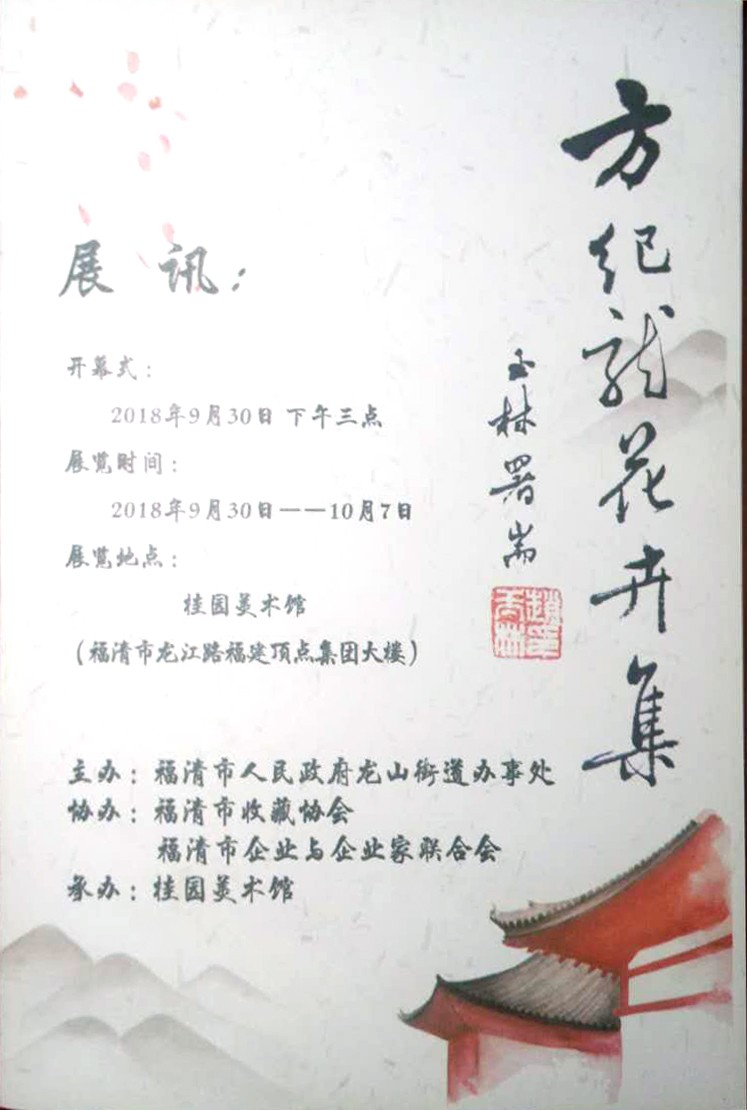 方纪龙花卉集
玉林署耑
赵玉林章
展 讯：
开幕式：
2018年9月30日 下午三点
展览时间：
2018年9月30日——10月7日
展览地点：
桂园美术馆
（福清市龙江路福建顶点集团大楼）
主办：福清市人民政府龙山街道办事处
协办：福清市收藏协会
福清市企业与企业家联合会
承办：桂园美术馆